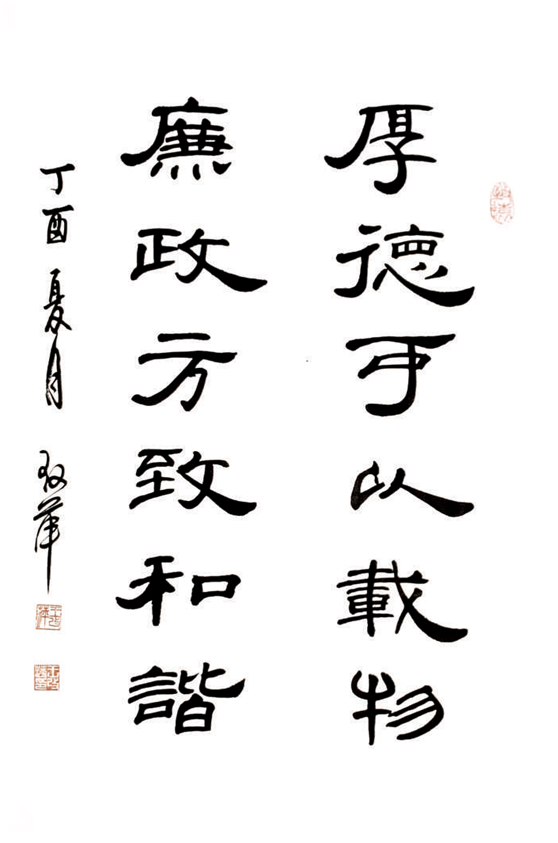 厚德可以載物
廉政方致和諧
丁酉夏月